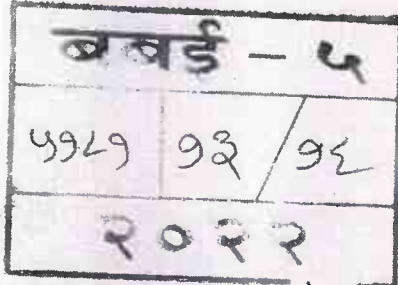 बबई - ५
५१८१ १३/१६
२०२२